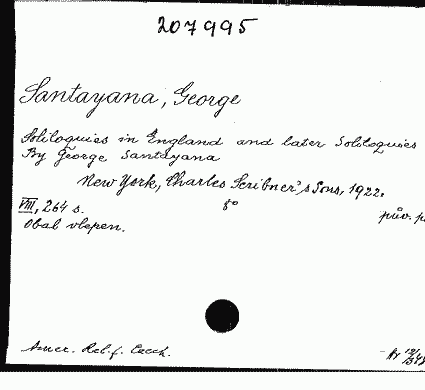 207995
Santayana, George
Soliloquies in England and later Soliloquies
By George Santayana
New York, Charles Scribner's Sons, 1922.
VIII, 264 s. 8° pův.
Obal vlepen.
Amer. Rel. f. Czech.